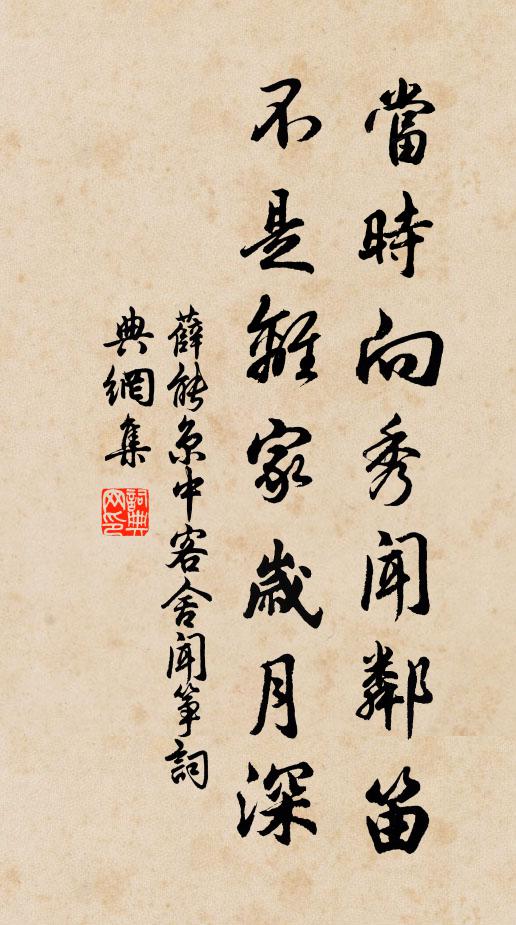 當時向秀聞鄰笛
不是離家歲月深
薛能京中客舍聞箏詞
典網集
詞典網印